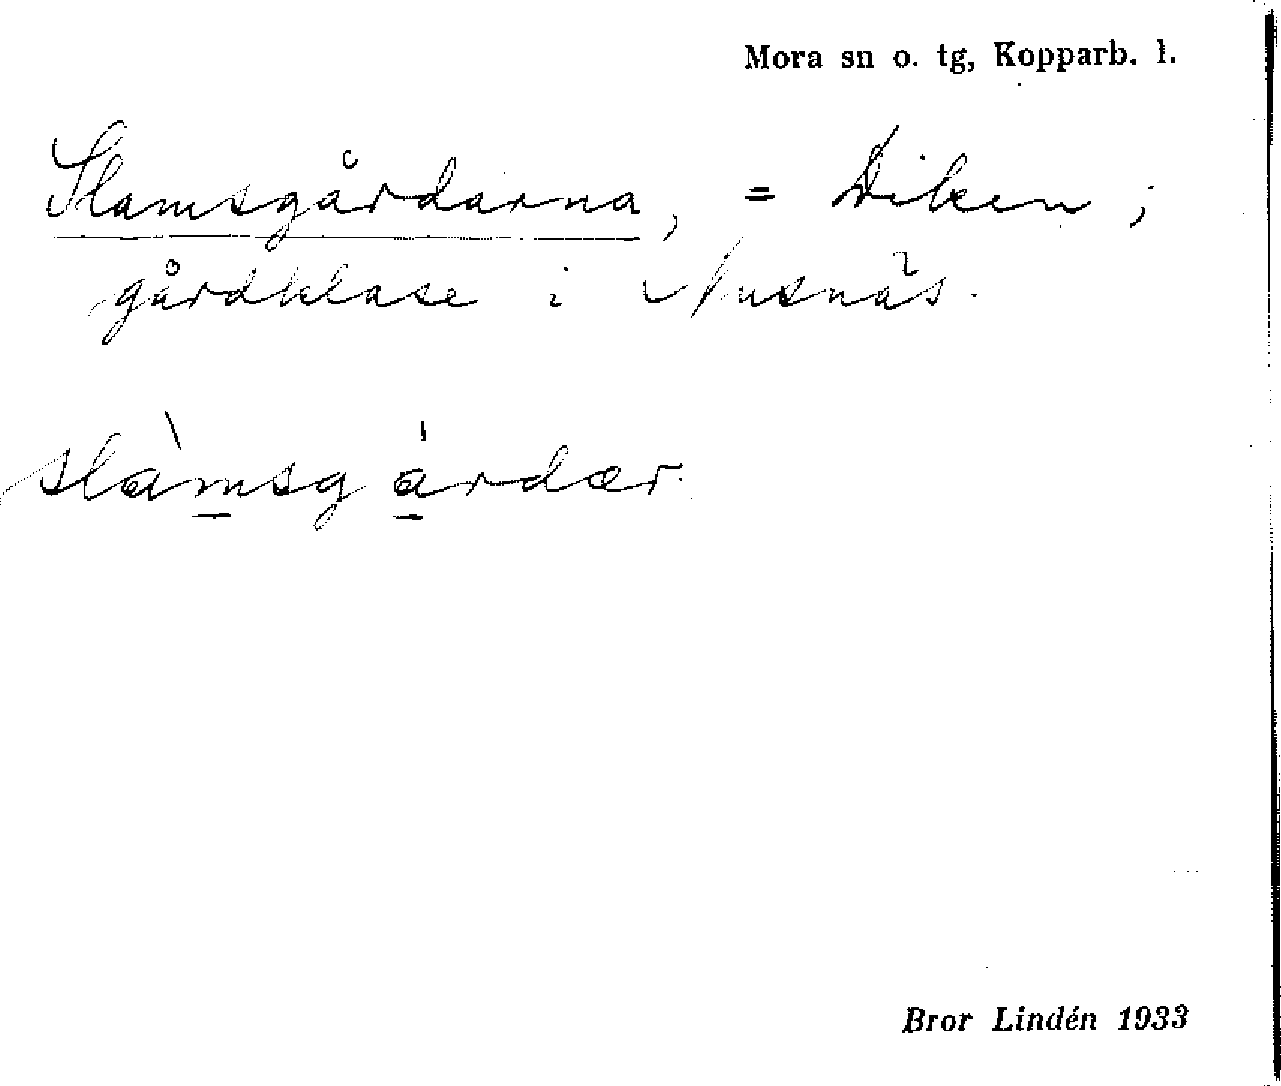 Mora sn o. tg, Kopparb. l.
Slamsgårdarna, = Diken;
gårdklase i Nusnäs.
slàmsgárdær.
Bror Lindén 1933